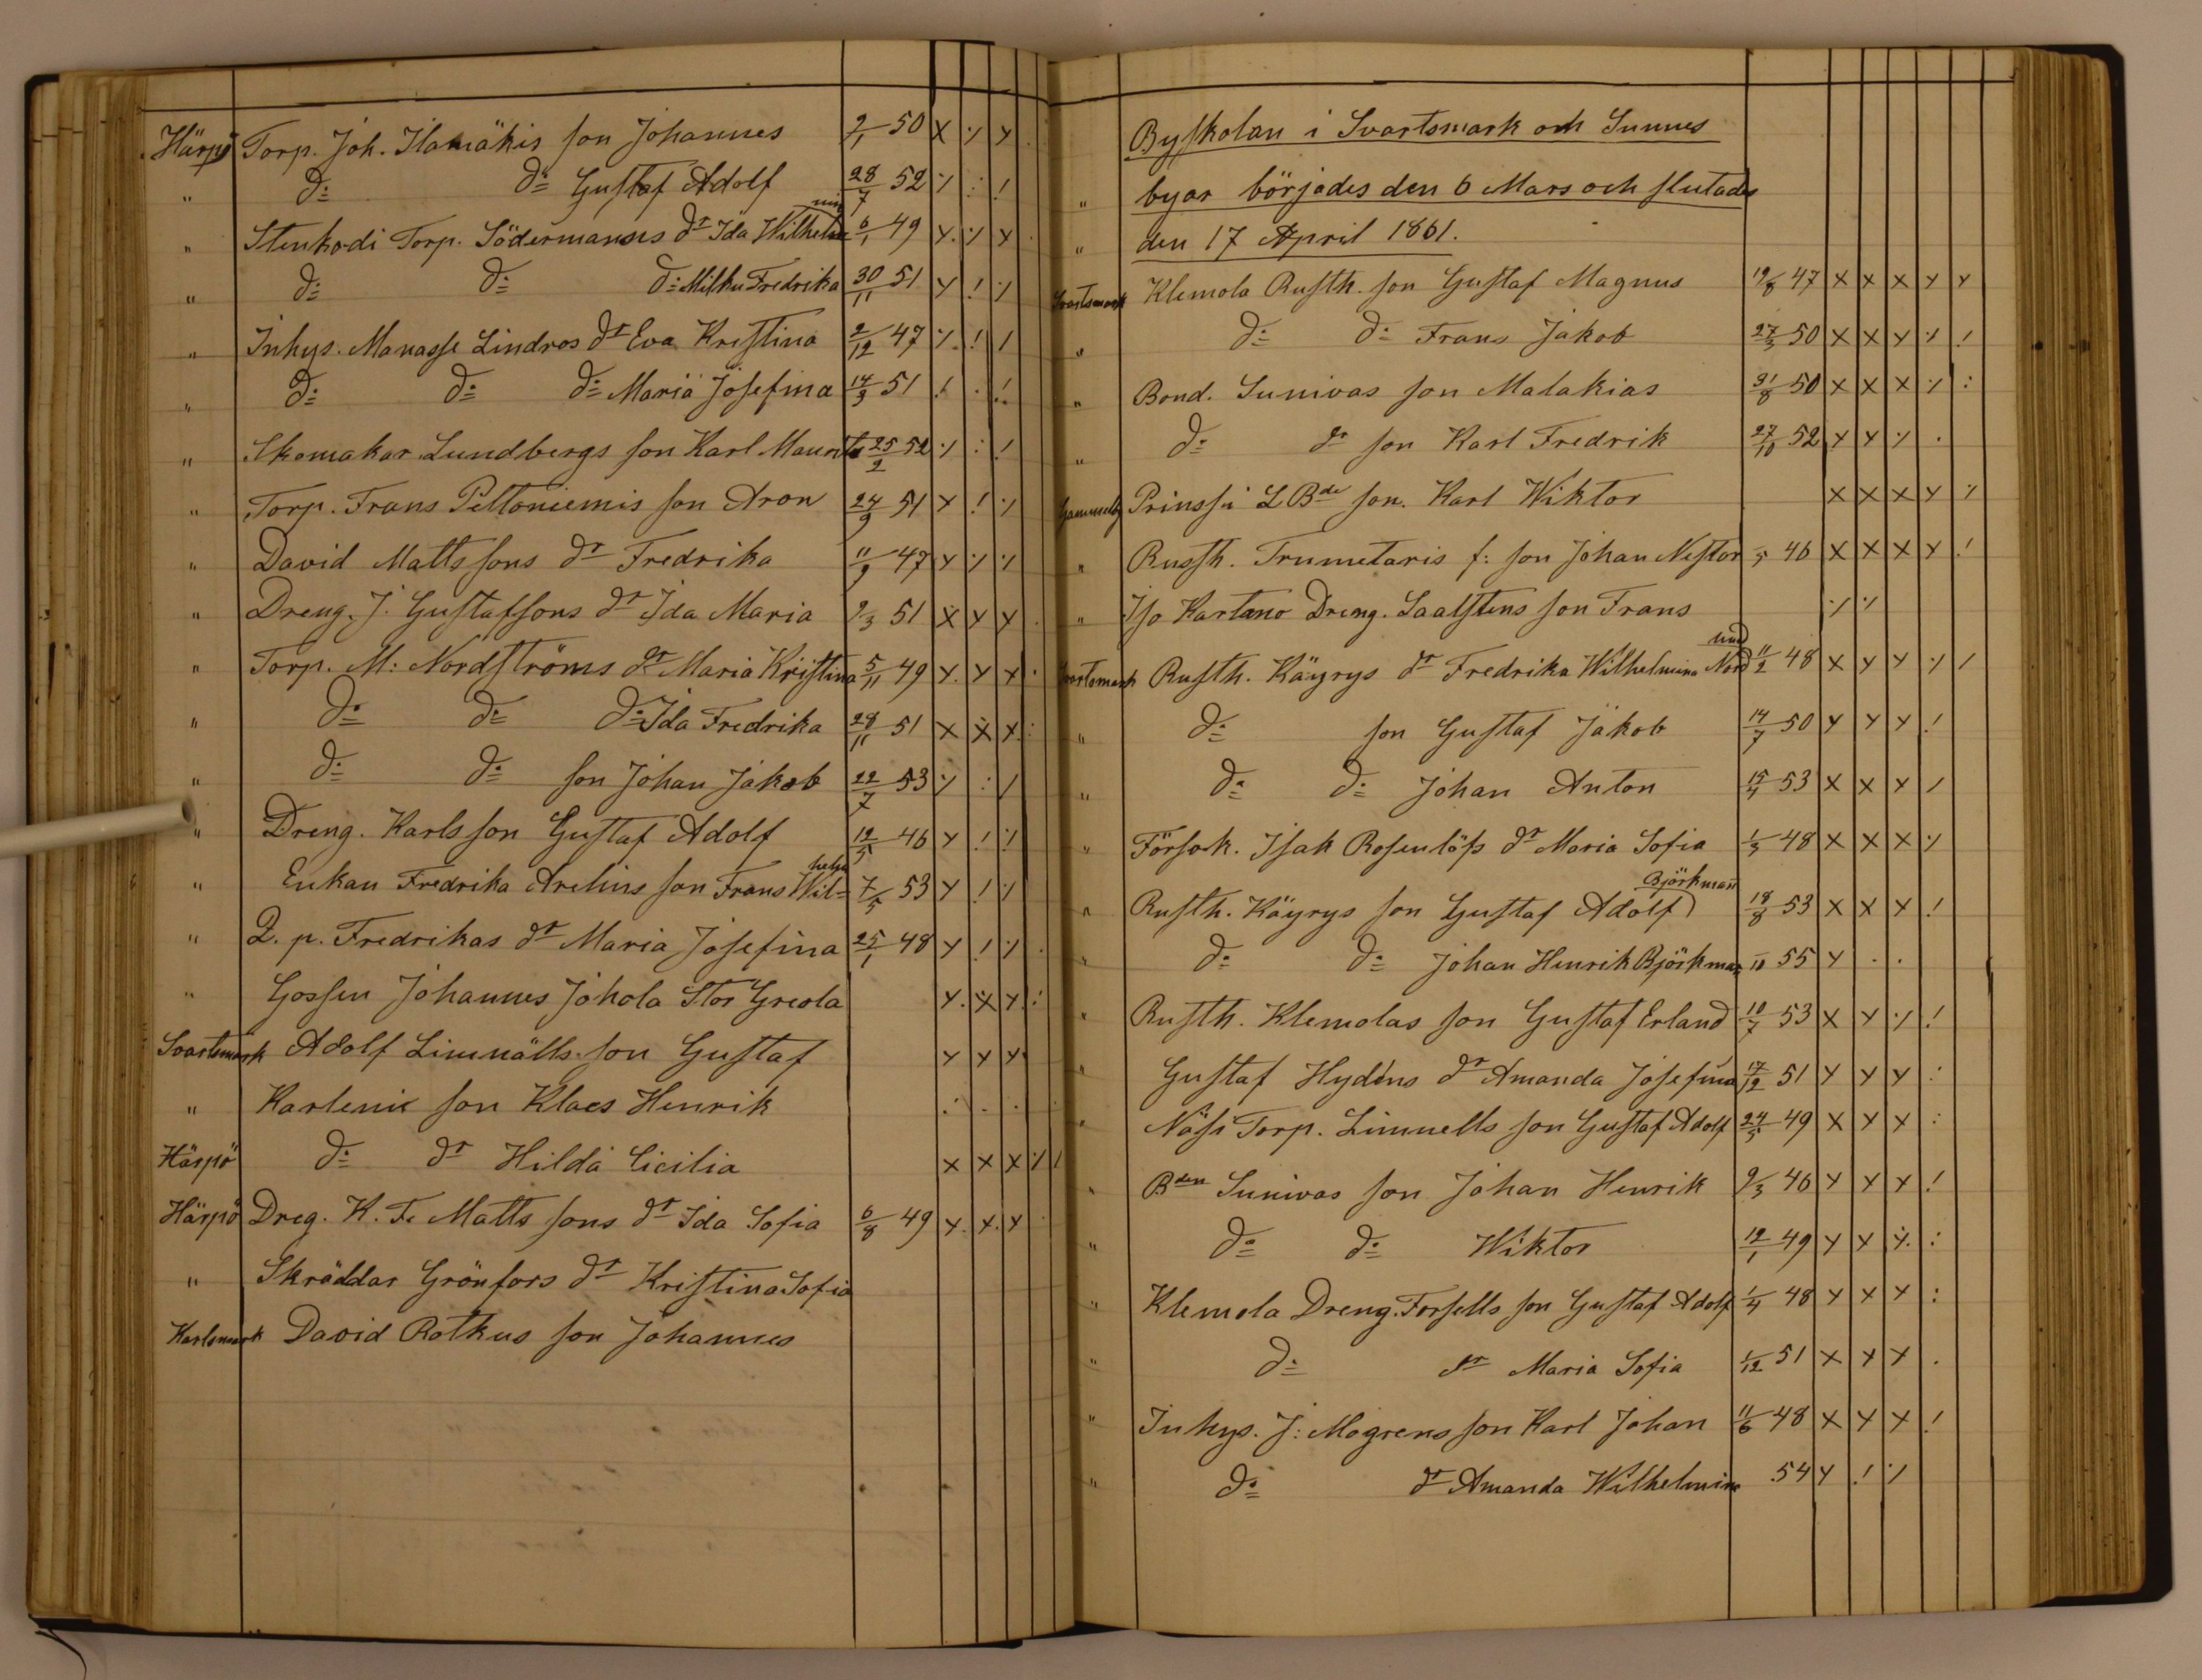 Härpö Torp. Joh. Ilamäkis son Johannes 2/1 50 X ٪ X
" d:o d:o Gustaf Adolf 28/7 52 ٪ : !
" Stenkodi Torp. Södermans dr Ida Wilhelmina 6/1 49 X ٪ X
" d:o d:o d:o Milka Fredrika 30/11 51 X ! ٪
" Inhys. Manasse Lindros dr Eva Kristina 2/12 47 ٪ ! /
" d:o d:o d:o Maria Josefina 14/3 51 ! . !
" Skomakar Lundbergs son Karl Maurits 25/2 52 ٪ : !
" Torp. Frans Peltoniemis son Aron 24/9 51 X ! ٪
" David Mattssons dr Fredrika 11/9 47 X ٪ ٪
" Dreng. J. Gustafsons dr Ida Maria 2/3 51 X X X
" Torp. M: Nordströms dr Maria Kristina 5/11 49 X X X .
" d:o d:o d:o Ida Fredrika 28/11 51 X X X :
" d:o d:o son Johan Jakob 22/7 53 ٪ : /
" Dreng. Karlsson Gustaf Adolf 12/5 46 X ! ٪
" Enkan Fredrika Arelins son Frans Wilhelm 7/5 53 X ! ٪
" Q. p. Fredrikas dr Maria Josefina 25/1 48 X ! ٪
" Gossen Johannes Johola Stor Greola X X X :
Svartsmark Adolf Limnälls son Gustaf X X X
" Karlenic son Klaes Henrik . . .
Härpö d:o dr Hilda Cicilia X X X ٪ /
Härpö Dreg. K. F. Matts sons dr Ida Sofia 6/8 49 X X X
" Skräddar Grönfors dr Kristina Sofia
Karlsmark David Rotkus son Johannes
Byskolan i Svartsmark och Sunnes
" byar börjades den 6 Mars och slutades
" den 17 April 1861.
Svartsmark Klemola Rusth. son Gustaf Magnus 19/8 47 X X X X X
" d:o d:o Frans Jakob 27/3 50 X X X ٪ !
" Bond. Sunivas son Malakias 31/8 50 X X X ٪ :
" d:o dr son Karl Fredrik 27/10 52 X X ٪ .
Gammelby Prinssi L Bde son. Karl Wiktor X X X X ٪
" Russth. Trumetaris f: son Johan Nestor 5 46 X X X X !
" Iso Kartano Dreng. Saalstens son Frans ٪ ٪
Svartsmark Rusth. Käyrys dr Fredrika Wilhelmina Nord 11/2 48 X X X ٪ /
" d:o son Gustaf Jakob 14/7 50 X X X !
" d:o d:o Johan Anton 15/4 53 X X X /
" Försok. Isak Rosenlöfs dr Maria Sofia 1/3 48 X X X ٪
" Rusth. Käyrys son Gustaf Adolf Björkman 18/8 53 X X X !
" d:o d:o Johan Henrik Björkman 10 55 X . .
" Rusth. Klemolas son Gustaf Erland 10/7 53 X X ٪ !
" Gustaf Hydéns dr Amanda Josefina 17/12 51 X X X :
" Näsi Torp. Limnells son Gustaf Adolf 24/5 49 X X X :
" Bden Sunivas son Johan Henrik 9/3 46 X X X !
" d:o d:o Wiktor 12/1 49 X X ٪ :
" Klemola Dreng. Forsells son Gustaf Adolf 1/4 48 X X X :
" d:o dr Maria Sofia 1/12 51 X X X .
" Inhys. J: Mogrens son Karl Johan 11/6 48 X X X !
" d:o dr Amanda Wilhelmina 54 X ! ٪